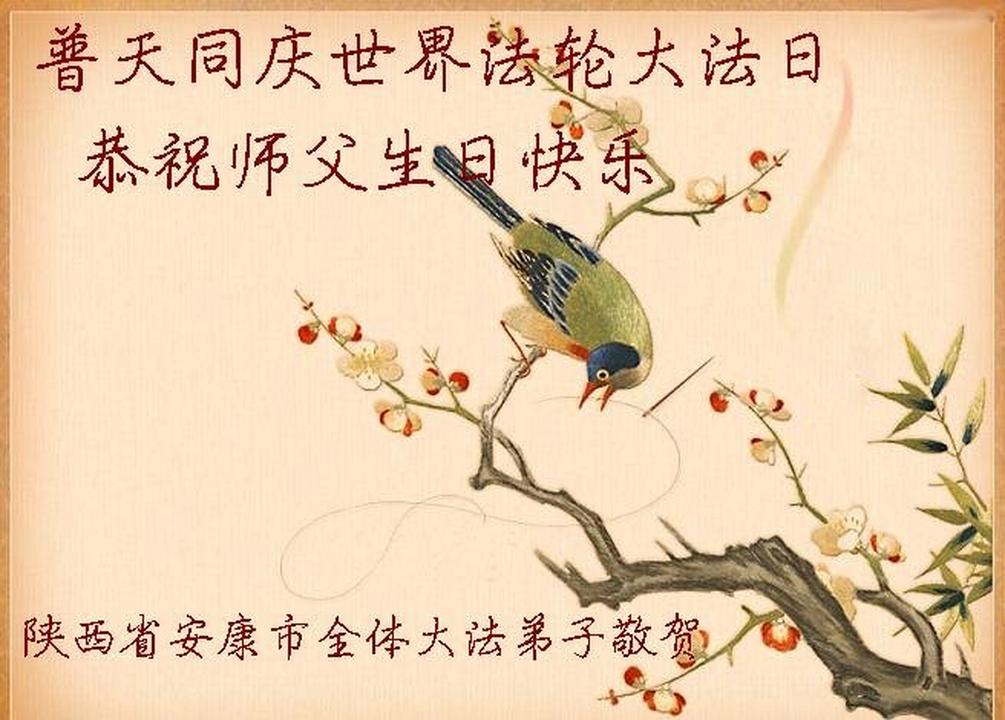 普天同庆世界法轮大法日
恭祝师父生日快乐
陕西省安康市全体大法弟子敬贺